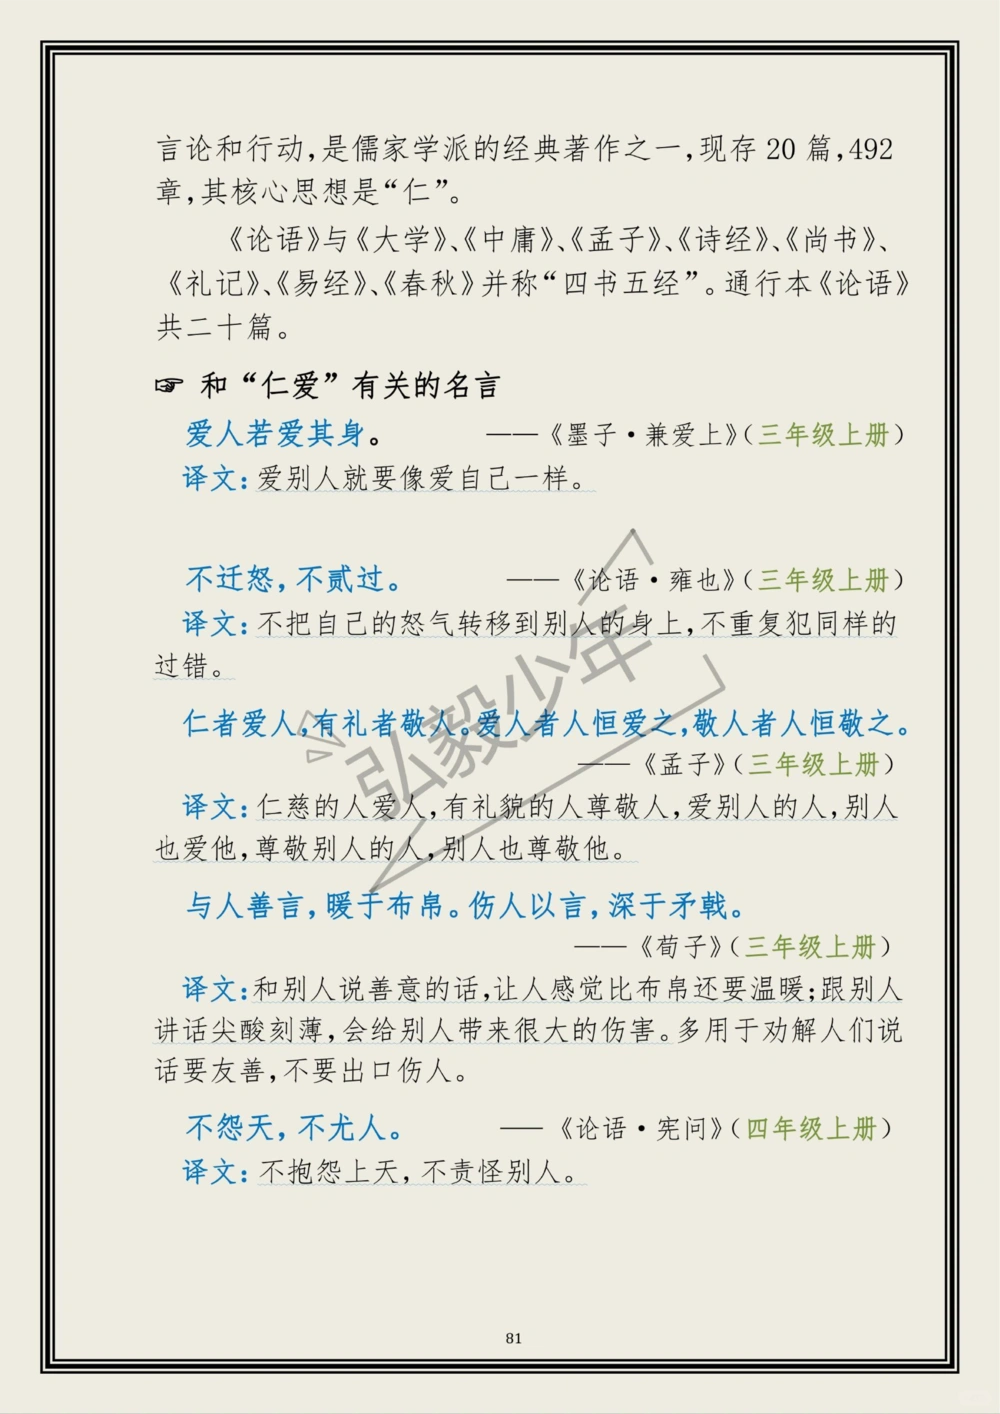 言论和行动，是儒家学派的经典著作之一，现存 20 篇，492
章，其核心思想是“仁”。
《论语》与《大学》、《中庸》、《孟子》、《诗经》、《尚书》、
《礼记》、《易经》、《春秋》并称“四书五经”。通行本《论语》
共二十篇。
☞ 和“仁爱”有关的名言
爱人若爱其身。 ——《墨子·兼爱上》（三年级上册）
译文：爱别人就要像爱自己一样。
不迁怒，不贰过。 ——《论语·雍也》（三年级上册）
译文：不把自己的怒气转移到别人的身上，不重复犯同样的
过错。
仁者爱人，有礼者敬人。爱人者人恒爱之，敬人者人恒敬之。
——《孟子》（三年级上册）
译文：仁慈的人爱人，有礼貌的人尊敬人，爱别人的人，别人
也爱他，尊敬别人的人，别人也尊敬他。
与人善言，暖于布帛。伤人以言，深于矛戟。
——《荀子》（三年级上册）
译文：和别人说善意的话，让人感觉比布帛还要温暖；跟别人
讲话尖酸刻薄，会给别人带来很大的伤害。多用于劝解人们说
话要友善，不要出口伤人。
不怨天，不尤人。 ——《论语·宪问》（四年级上册）
译文：不抱怨上天，不责怪别人。
弘毅少年
81